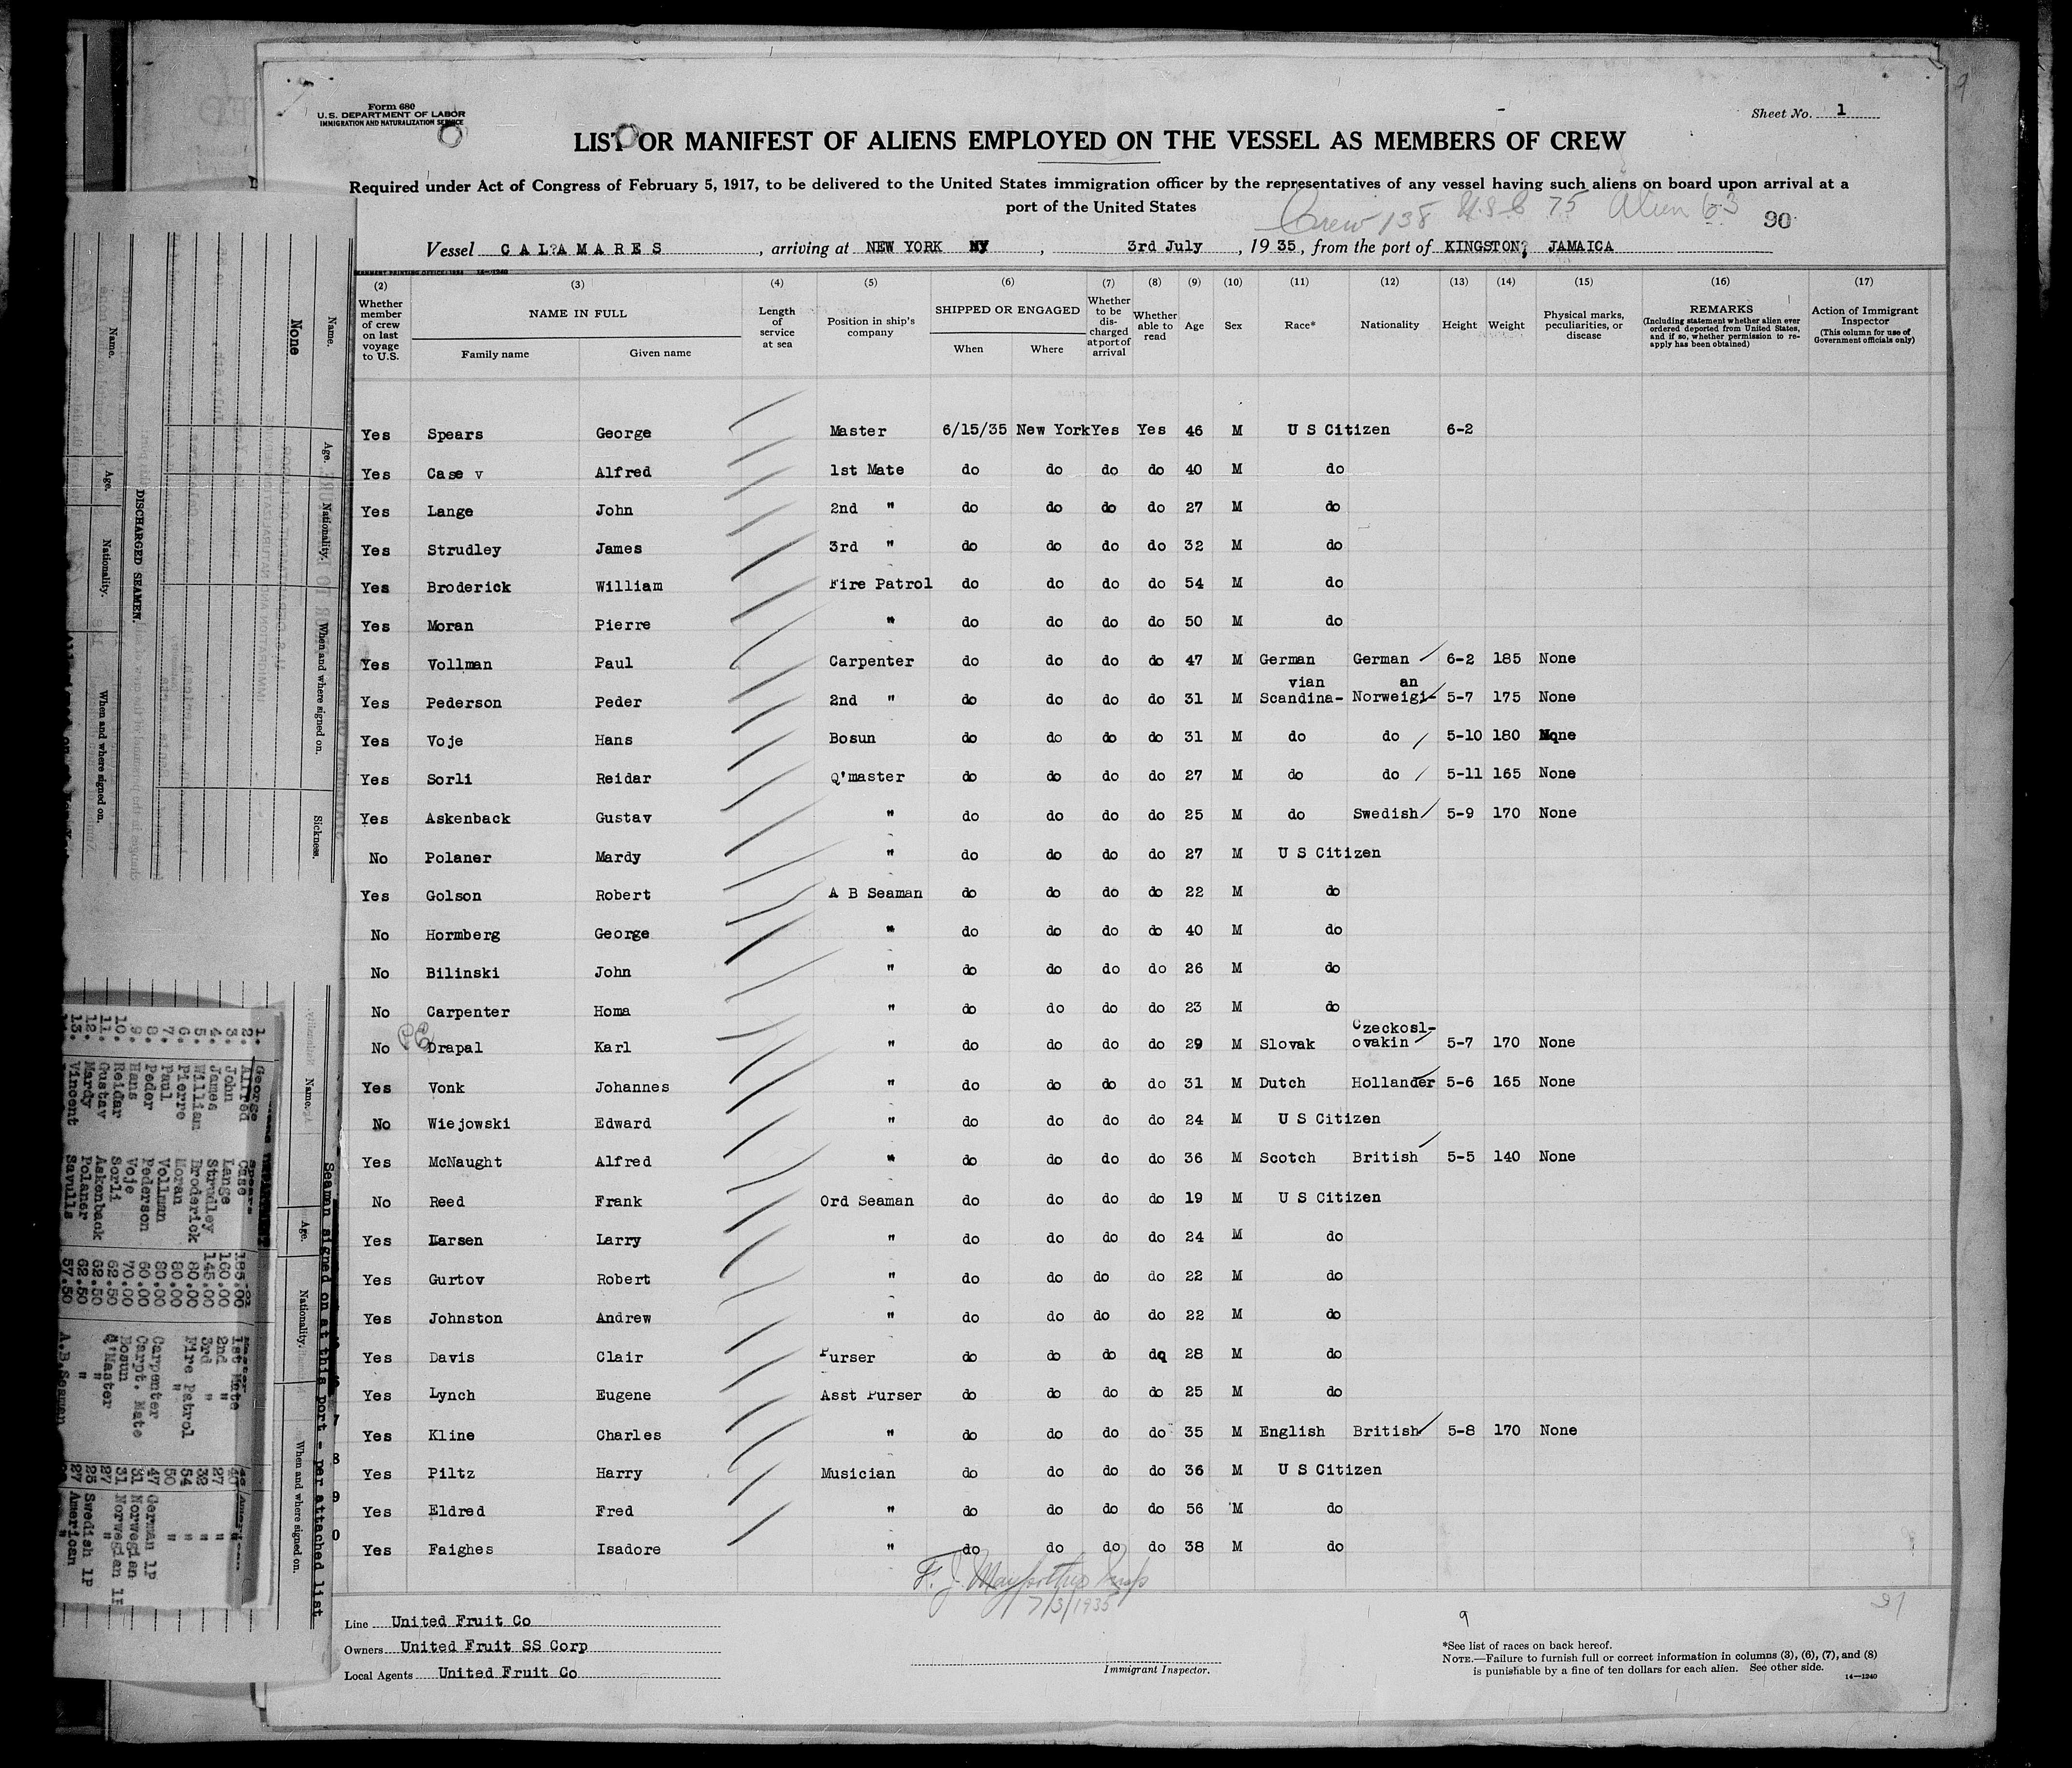 Form 680
U.S. DEPARTMENT OF LABOR
IMMIGRATION AND NATURALIZATION SERVICE
Sheet No. 1
LIST OR MANIFEST OF ALIENS EMPLOYED ON THE VESSEL AS MEMBERS OF CREW
Required under Act of Congress of February 5, 1917, to be delivered to the United States immigration officer by the representatives of any vessel having such aliens on board upon arrival at a
port of the United States
Crew 138 U.S.C 75 Alien 63
90
Vessel CAL?AMARES, arriving at NEW YORK NY, 3rd July, 1935, from the port of KINGSTON, JAMAICA
(2) (3) (4) (5) (6) (7) (8) (9) (10) (11) (12) (13) (14) (15) (16) (17)
Whether member of crew on last voyage to U.S. NAME IN FULL Family name Given name Length of service at sea Position in ship's company SHIPPED OR ENGAGED When Where Whether to be discharged at port of arrival Whether able to read Age Sex Race* Nationality Height Weight Physical marks, peculiarities, or disease REMARKS (Including statement whether alien ever ordered deported from United States, and if so, whether permission to reapply has been obtained) Action of Immigrant Inspector (This column for use of Government officials only)
Yes Spears George Master 6/15/35 New York Yes Yes 46 M U S Citizen 6-2
Yes Case v Alfred 1st Mate do do do do 40 M do
Yes Lange John 2nd " do do do do 27 M do
Yes Strudley James 3rd " do do do do 32 M do
Yes Broderick William Fire Patrol do do do do 54 M do
Yes Moran Pierre " do do do do 50 M do
Yes Vollman Paul Carpenter do do do do 47 M German German 6-2 185 None
vian an
Yes Pederson Peder 2nd " do do do do 31 M Scandina- Norweigi- 5-7 175 None
Yes Voje Hans Bosun do do do do 31 M do do 5-10 180 None
Yes Sorli Reidar Q'master do do do do 27 M do do 5-11 165 None
Yes Askenback Gustav " do do do do 25 M do Swedish 5-9 170 None
No Polaner Mardy " do do do do 27 M U S Citizen
Yes Golson Robert A B Seaman do do do do 22 M do
No Hormberg George " do do do do 40 M do
No Bilinski John " do do do do 26 M do
No Carpenter Homa " do do do do 23 M do
Czeckosl-
No Drapal Karl " do do do do 29 M Slovak ovakin 5-7 170 None
Yes Vonk Johannes " do do do do 31 M Dutch Hollander 5-6 165 None
No Wiejowski Edward " do do do do 24 M U S Citizen
Yes McNaught Alfred " do do do do 36 M Scotch British 5-5 140 None
No Reed Frank Ord Seaman do do do do 19 M U S Citizen
Yes Larsen Larry " do do do do 24 M do
Yes Gurtov Robert " do do do do 22 M do
Yes Johnston Andrew " do do do do 22 M do
Yes Davis Clair Purser do do do do 28 M do
Yes Lynch Eugene Asst Purser do do do do 25 M do
Yes Kline Charles " do do do do 35 M English British 5-8 170 None
Yes Piltz Harry Musician do do do do 36 M U S Citizen
Yes Eldred Fred " do do do do 56 M do
Yes Faighes Isadore " do do do do 38 M do
7/3/1935
Line United Fruit Co
Owners United Fruit SS Corp
Local Agents United Fruit Co
Immigrant Inspector.
9
91
*See list of races on back hereof.
NOTE.—Failure to furnish full or correct information in columns (3), (6), (7), and (8)
is punishable by a fine of ten dollars for each alien. See other side.
14—1240
Name. Age. Nationality. When and where signed on. Sickness.
None
DISCHARGED SEAMEN.
Name. Age. Nationality. When and where signed on.
Name. Age. Nationality. When and where signed on.
Seamen signed on at this port - per attached list
1. George Spears 185.00
2. Alfred Case 1st Mate 40
3. John Lange 160.00 2nd " 27 "
4. James Strudley 145.00 3rd " 32 "
5. William Broderick 80.00 Fire Patrol 54 "
6. Pierre Moran 80.00 " 50 "
7. Paul Vollman 80.00 Carpenter 47 German 1P
8. Peder Pederson 60.00 Carpt. Mate 31 Norwegian
9. Hans Voje 70.00 Bosun 31 Norwegian 1P
10. Reidar Sorli 62.50 Q'Master 27 "
11. Gustav Askenback 62.50 " 25 Swedish 1P
12. Mardy Polaner 62.50 " 27 American
13. Vincent Savulis 57.50 A.B.Seaman